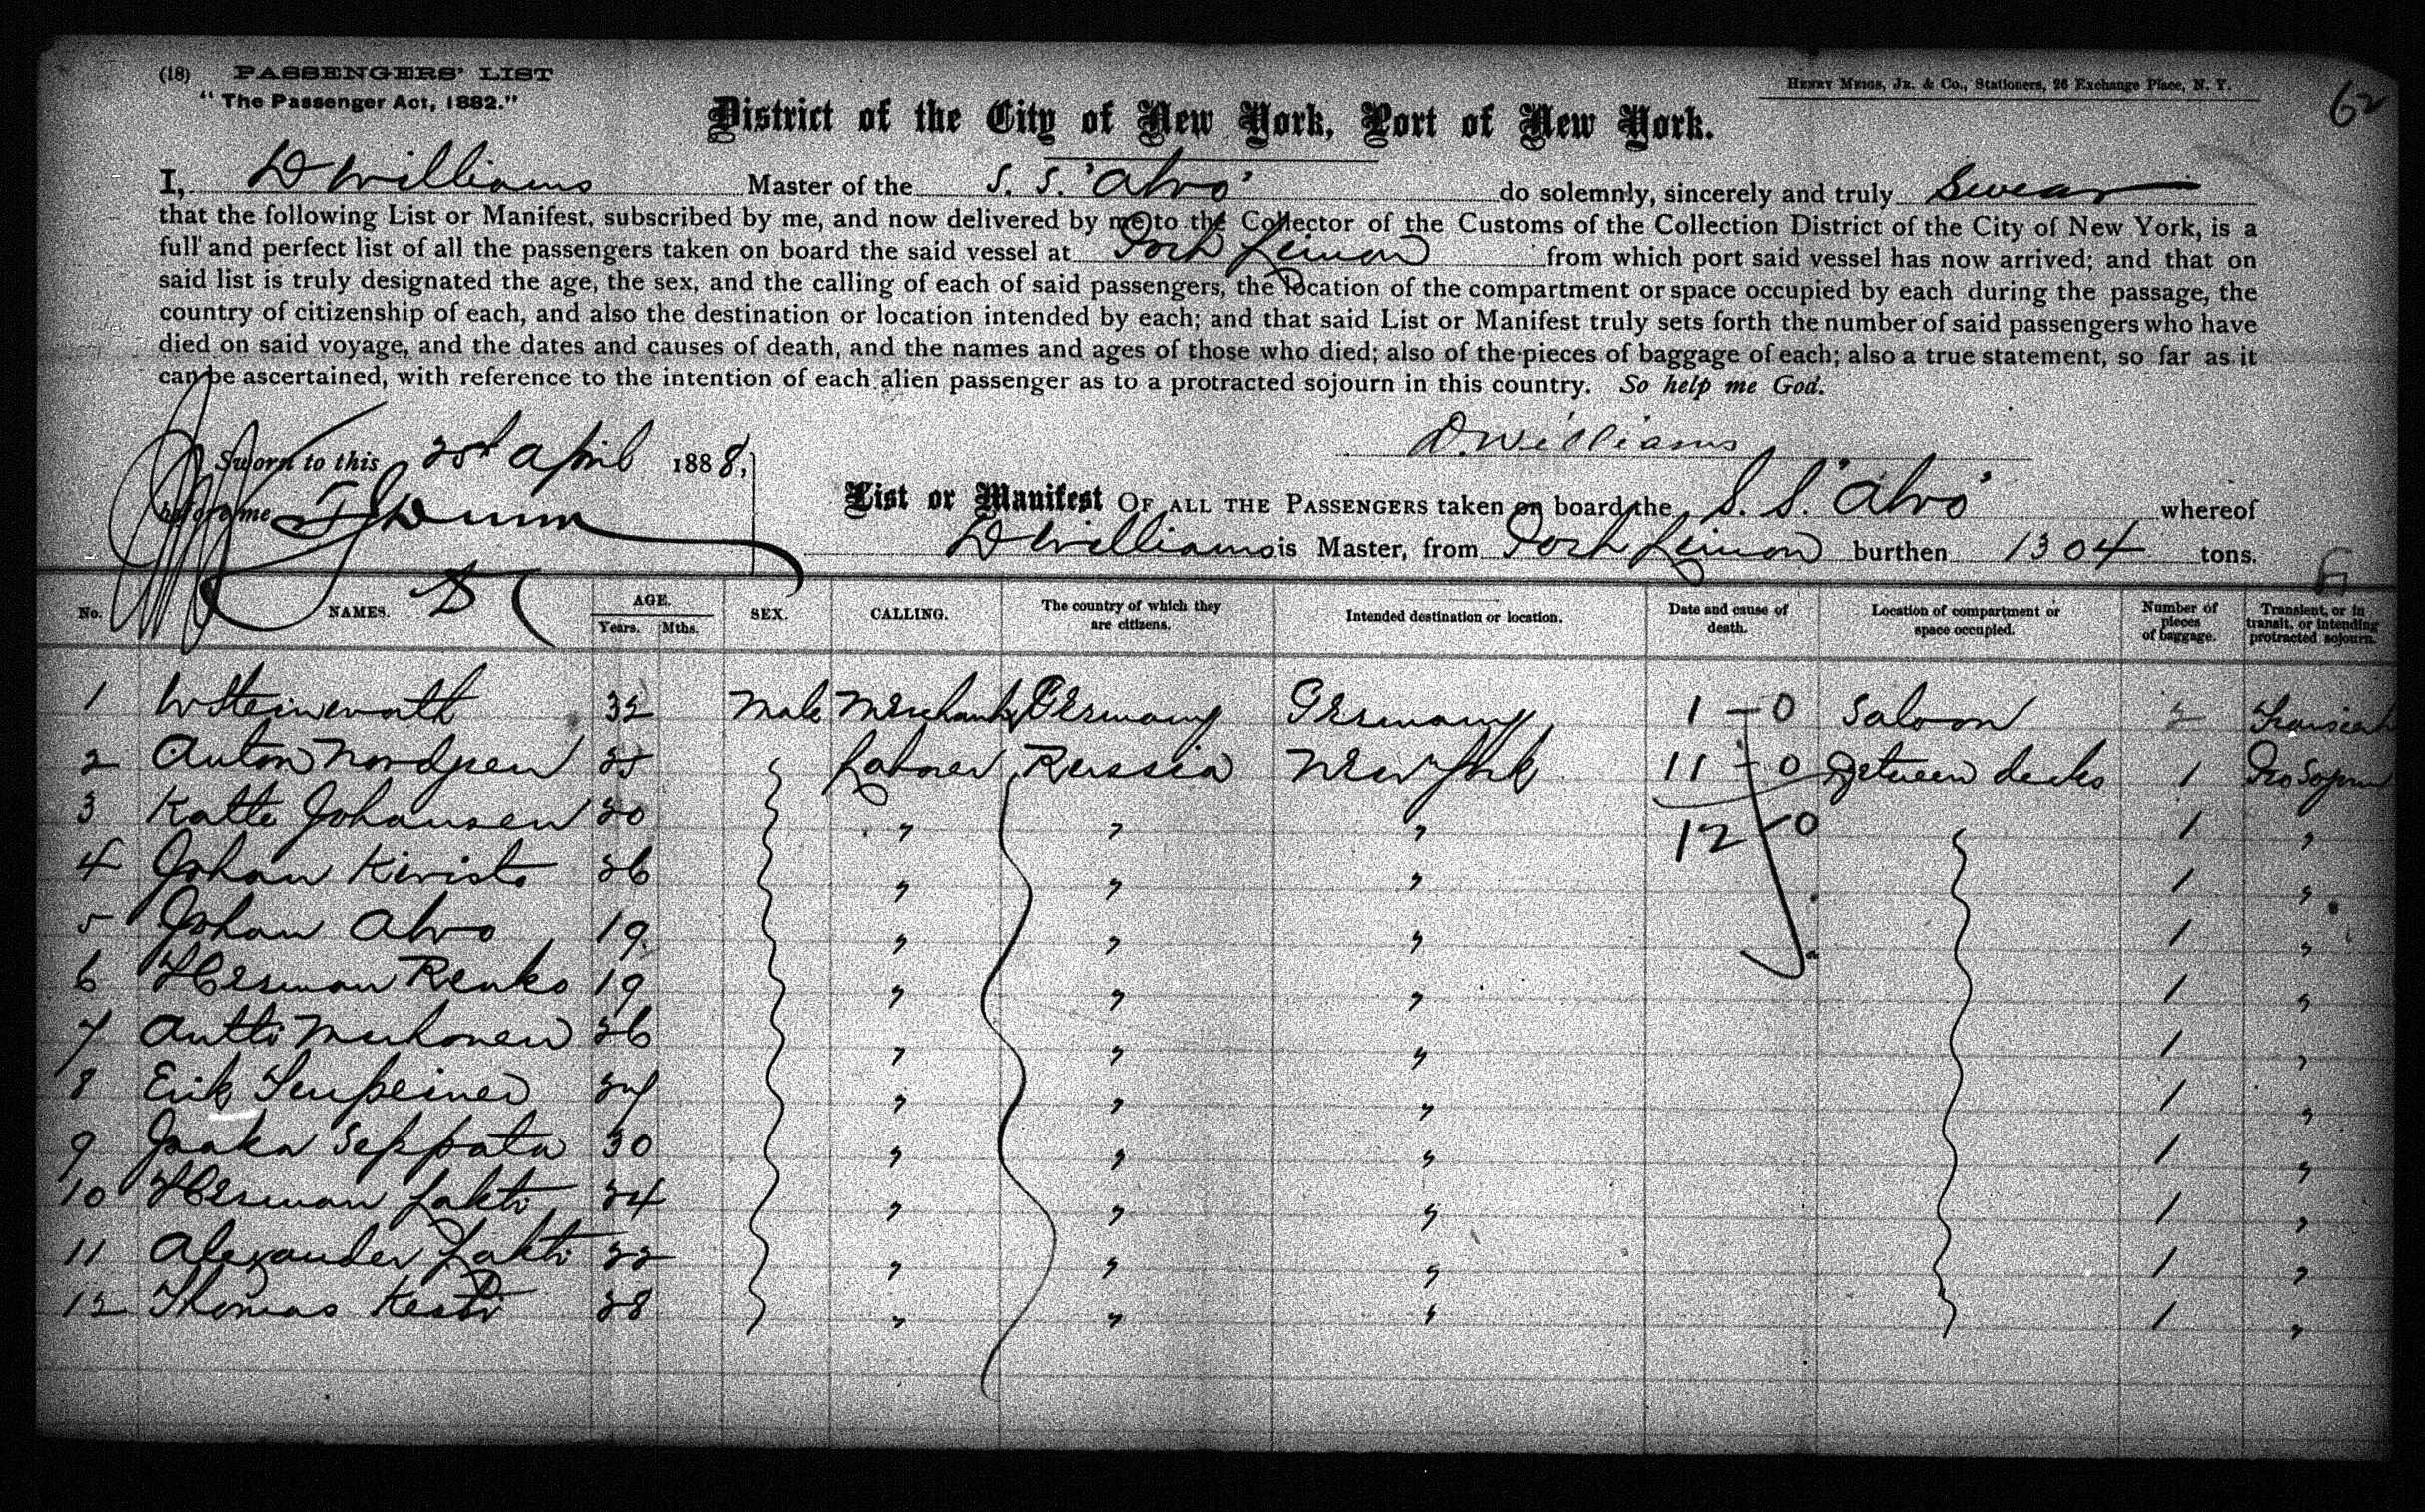 (18) PASSENGERS' LIST
"The Passenger Act, 1882."
HENRY MEIGS, JR. & CO., Stationers, 26 Exchange Place, N. Y.
62
District of the City of New York, Port of New York.
I, D Williams Master of the S. S. "Alvo" do solemnly, sincerely and truly Swear
that the following List or Manifest, subscribed by me, and now delivered by me to the Collector of the Customs of the Collection District of the City of New York, is a
full and perfect list of all the passengers taken on board the said vessel at Port Limon from which port said vessel has now arrived; and that on
said list is truly designated the age, the sex, and the calling of each of said passengers, the location of the compartment or space occupied by each during the passage, the
country of citizenship of each, and also the destination or location intended by each; and that said List or Manifest truly sets forth the number of said passengers who have
died on said voyage, and the dates and causes of death, and the names and ages of those who died; also of the pieces of baggage of each; also a true statement, so far as it
can be ascertained, with reference to the intention of each alien passenger as to a protracted sojourn in this country. So help me God.
D. Williams
Sworn to this April 1888,
before me
List or Manifest OF ALL THE PASSENGERS taken on board the S. S. "Alvo" whereof
D Williams is Master, from Port Limon burthen 1304 tons.
No. NAMES. AGE. Years. Mths. SEX. CALLING. The country of which they are citizens. Intended destination or location. Date and cause of death. Location of compartment or space occupied. Number of pieces of baggage. Transient, or in transit, or intending protracted sojourn.
1 W Steinwerath 32 Male Merchant Germany Germany 1 - 0 Saloon 2 Transient
2 Anton 25 Labourer Russia New York 11 - 0 Between decks 1 Pro Sojourn
3 Katte Johansen 20 " " " 12 - 0 1 "
4 Johan Kivisto 26 " " " 1 "
5 Johan Alvo 19 " " " 1 "
6 Herman Renko 19 " " " 1 "
7 Antti Muhonen 26 " " " 1 "
8 Erik 24 " " " 1 "
9 Jaaka Seppata 30 " " " 1 "
10 Herman Lakti 24 " " " 1 "
11 Alexander Lakti 22 " " " 1 "
12 Thomas Kesti 28 " " " 1 "